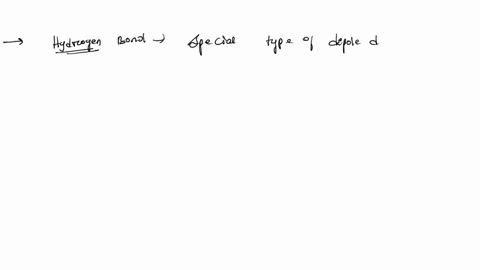 → Hydrogen Bond → Special type of depole d